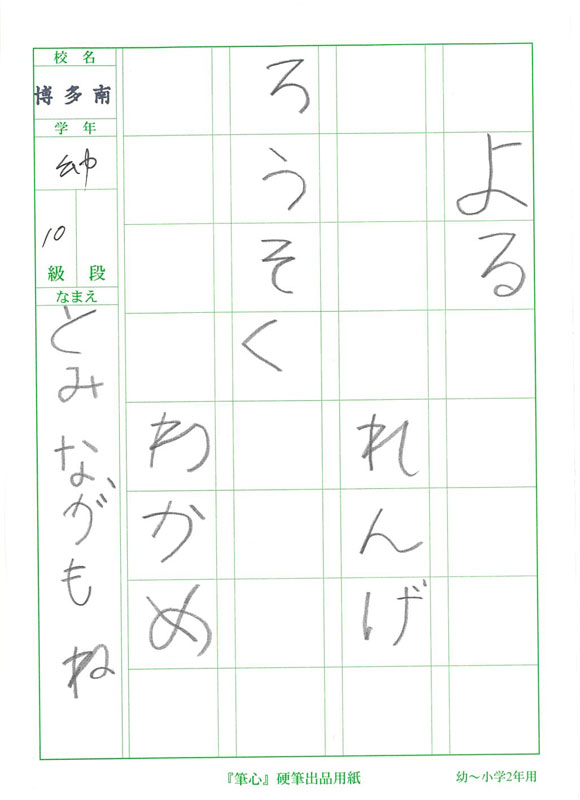 よる
れんげ
ろうそく
わかめ
校名
博多南
学年
幼
10
級 段
なまえ
とみながもね
『筆心』硬筆出品用紙
幼〜小学2年用